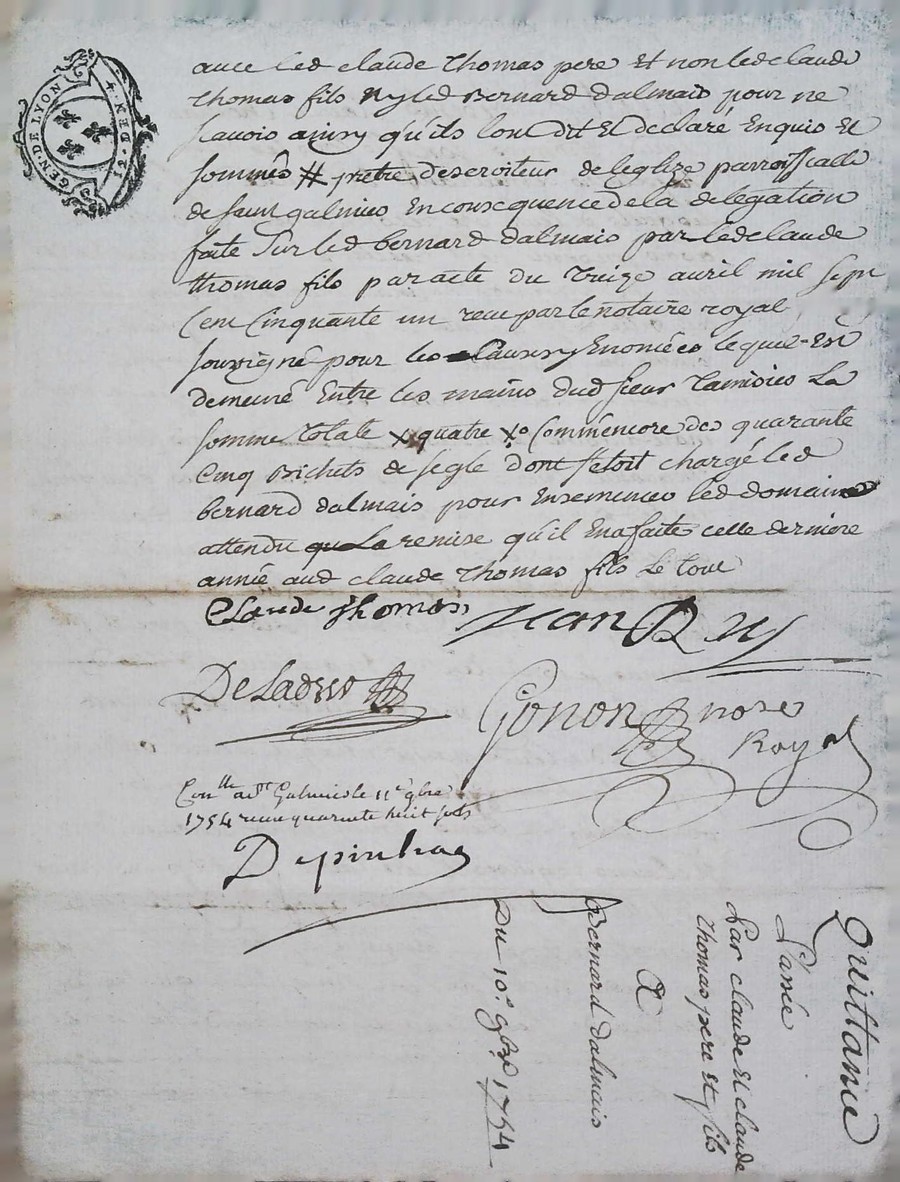 GEN. DE LYON
avec led claude thomas pere Et non led claude
thomas fils Ny led Bernard dalmais pour ne
scavoir ainsy qu'ils l'ont dit Et declaré Enquis Et
sommés # pretre deserviteur de leglize parroissialle
de saint galmier En consequence de la delegation
faite sur led bernard dalmais par led claude
thomas fils par acte du treize avril mil sept
Cent Cinquante un recu par le notaire royal
soussigné pour les causes y Enoncées lequel Est
demeuré Entre les mains dud sieur tamisier La
somme totale x quatre x Comm'encore des quarante
Cinq Bichets de segle dont s'etoit chargé led
bernard dalmais pour Ensemencer led domaine
attendu La remise qu'il En a faite cette derniere
année aud claude thomas fils Le tout
Claude Thomas
Jean
Gonon nore
Royal
Conlle a st Galmier le 11e 9bre
1754 recu quarante huit sols
Quittance
Passée
Par claude Et claude
thomas pere Et fils
A
Bernard dalmais
Du 10e 9bre 1754